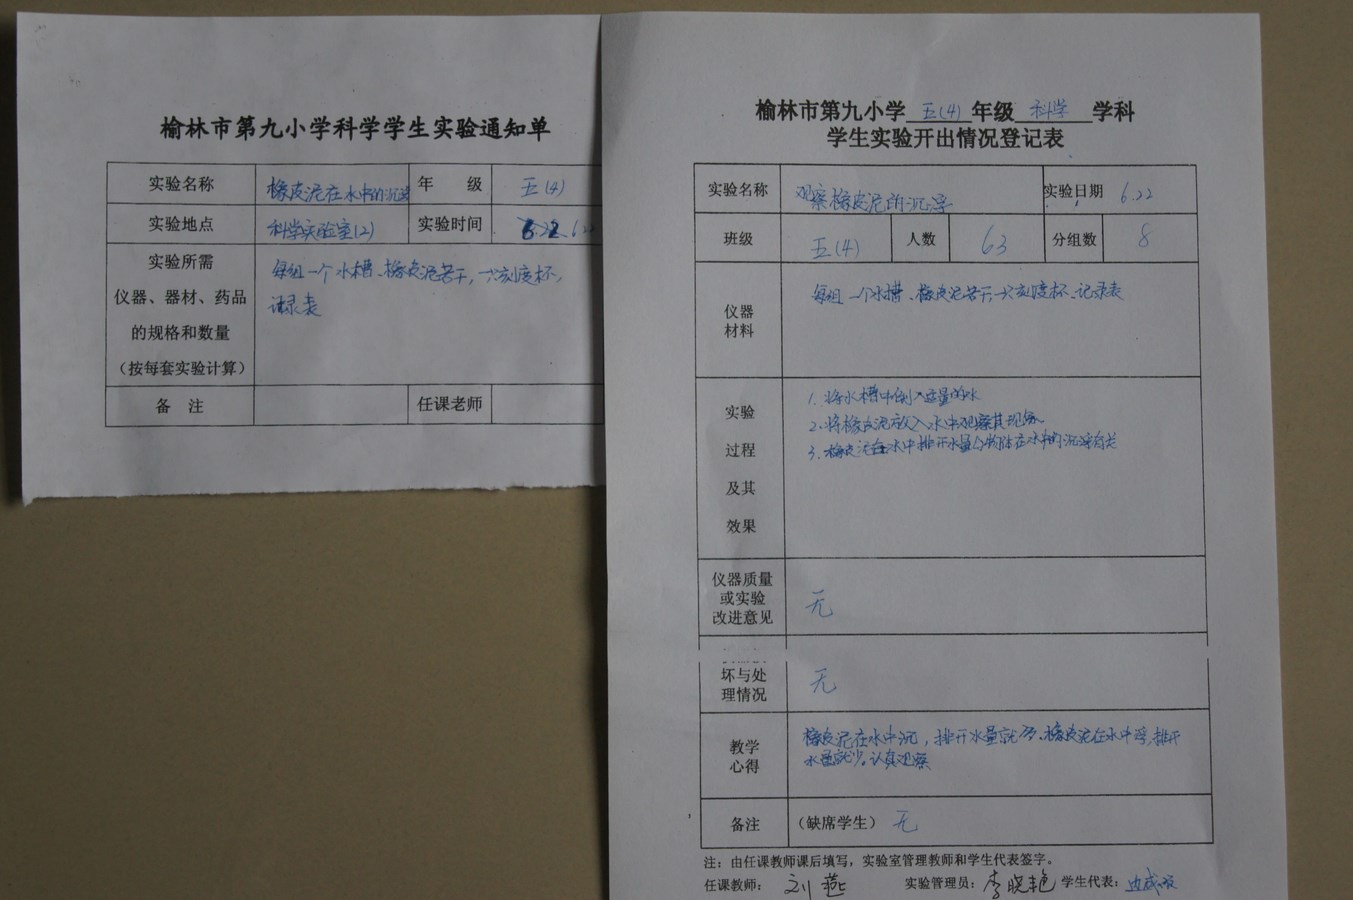 榆林市第九小学科学学生实验通知单
实验名称 橡皮泥在水中的沉浮 年 级 五(4)
实验地点 科学实验室(2) 实验时间 6.22
实验所需
仪器、器材、药品
的规格和数量
(按每套实验计算)
每组一个水槽、橡皮泥若干,一个刻度杯,
记录表
备 注 任课老师
榆林市第九小学 五(4) 年级 科学 学科
学生实验开出情况登记表
实验名称 观察橡皮泥的沉浮 实验日期 6.22
班级 五(4) 人数 63 分组数 8
仪器
材料
每组一个水槽、橡皮泥若干、一个刻度杯、记录表
实验
过程
及其
效果
1. 将水槽中倒入适量的水
2. 将橡皮泥放入水中观察其现象
3. 橡皮泥在水中排开水量与物体在水中的沉浮有关
仪器质量
或实验
改进意见
无
坏与处
理情况
无
教学
心得
橡皮泥在水中沉,排开水量就少、橡皮泥在水中浮,排开
水量就少。认真观察
备注 (缺席学生) 无
注:由任课教师课后填写,实验室管理教师和学生代表签字。
任课教师: 刘燕 实验管理员: 李晓艳 学生代表: